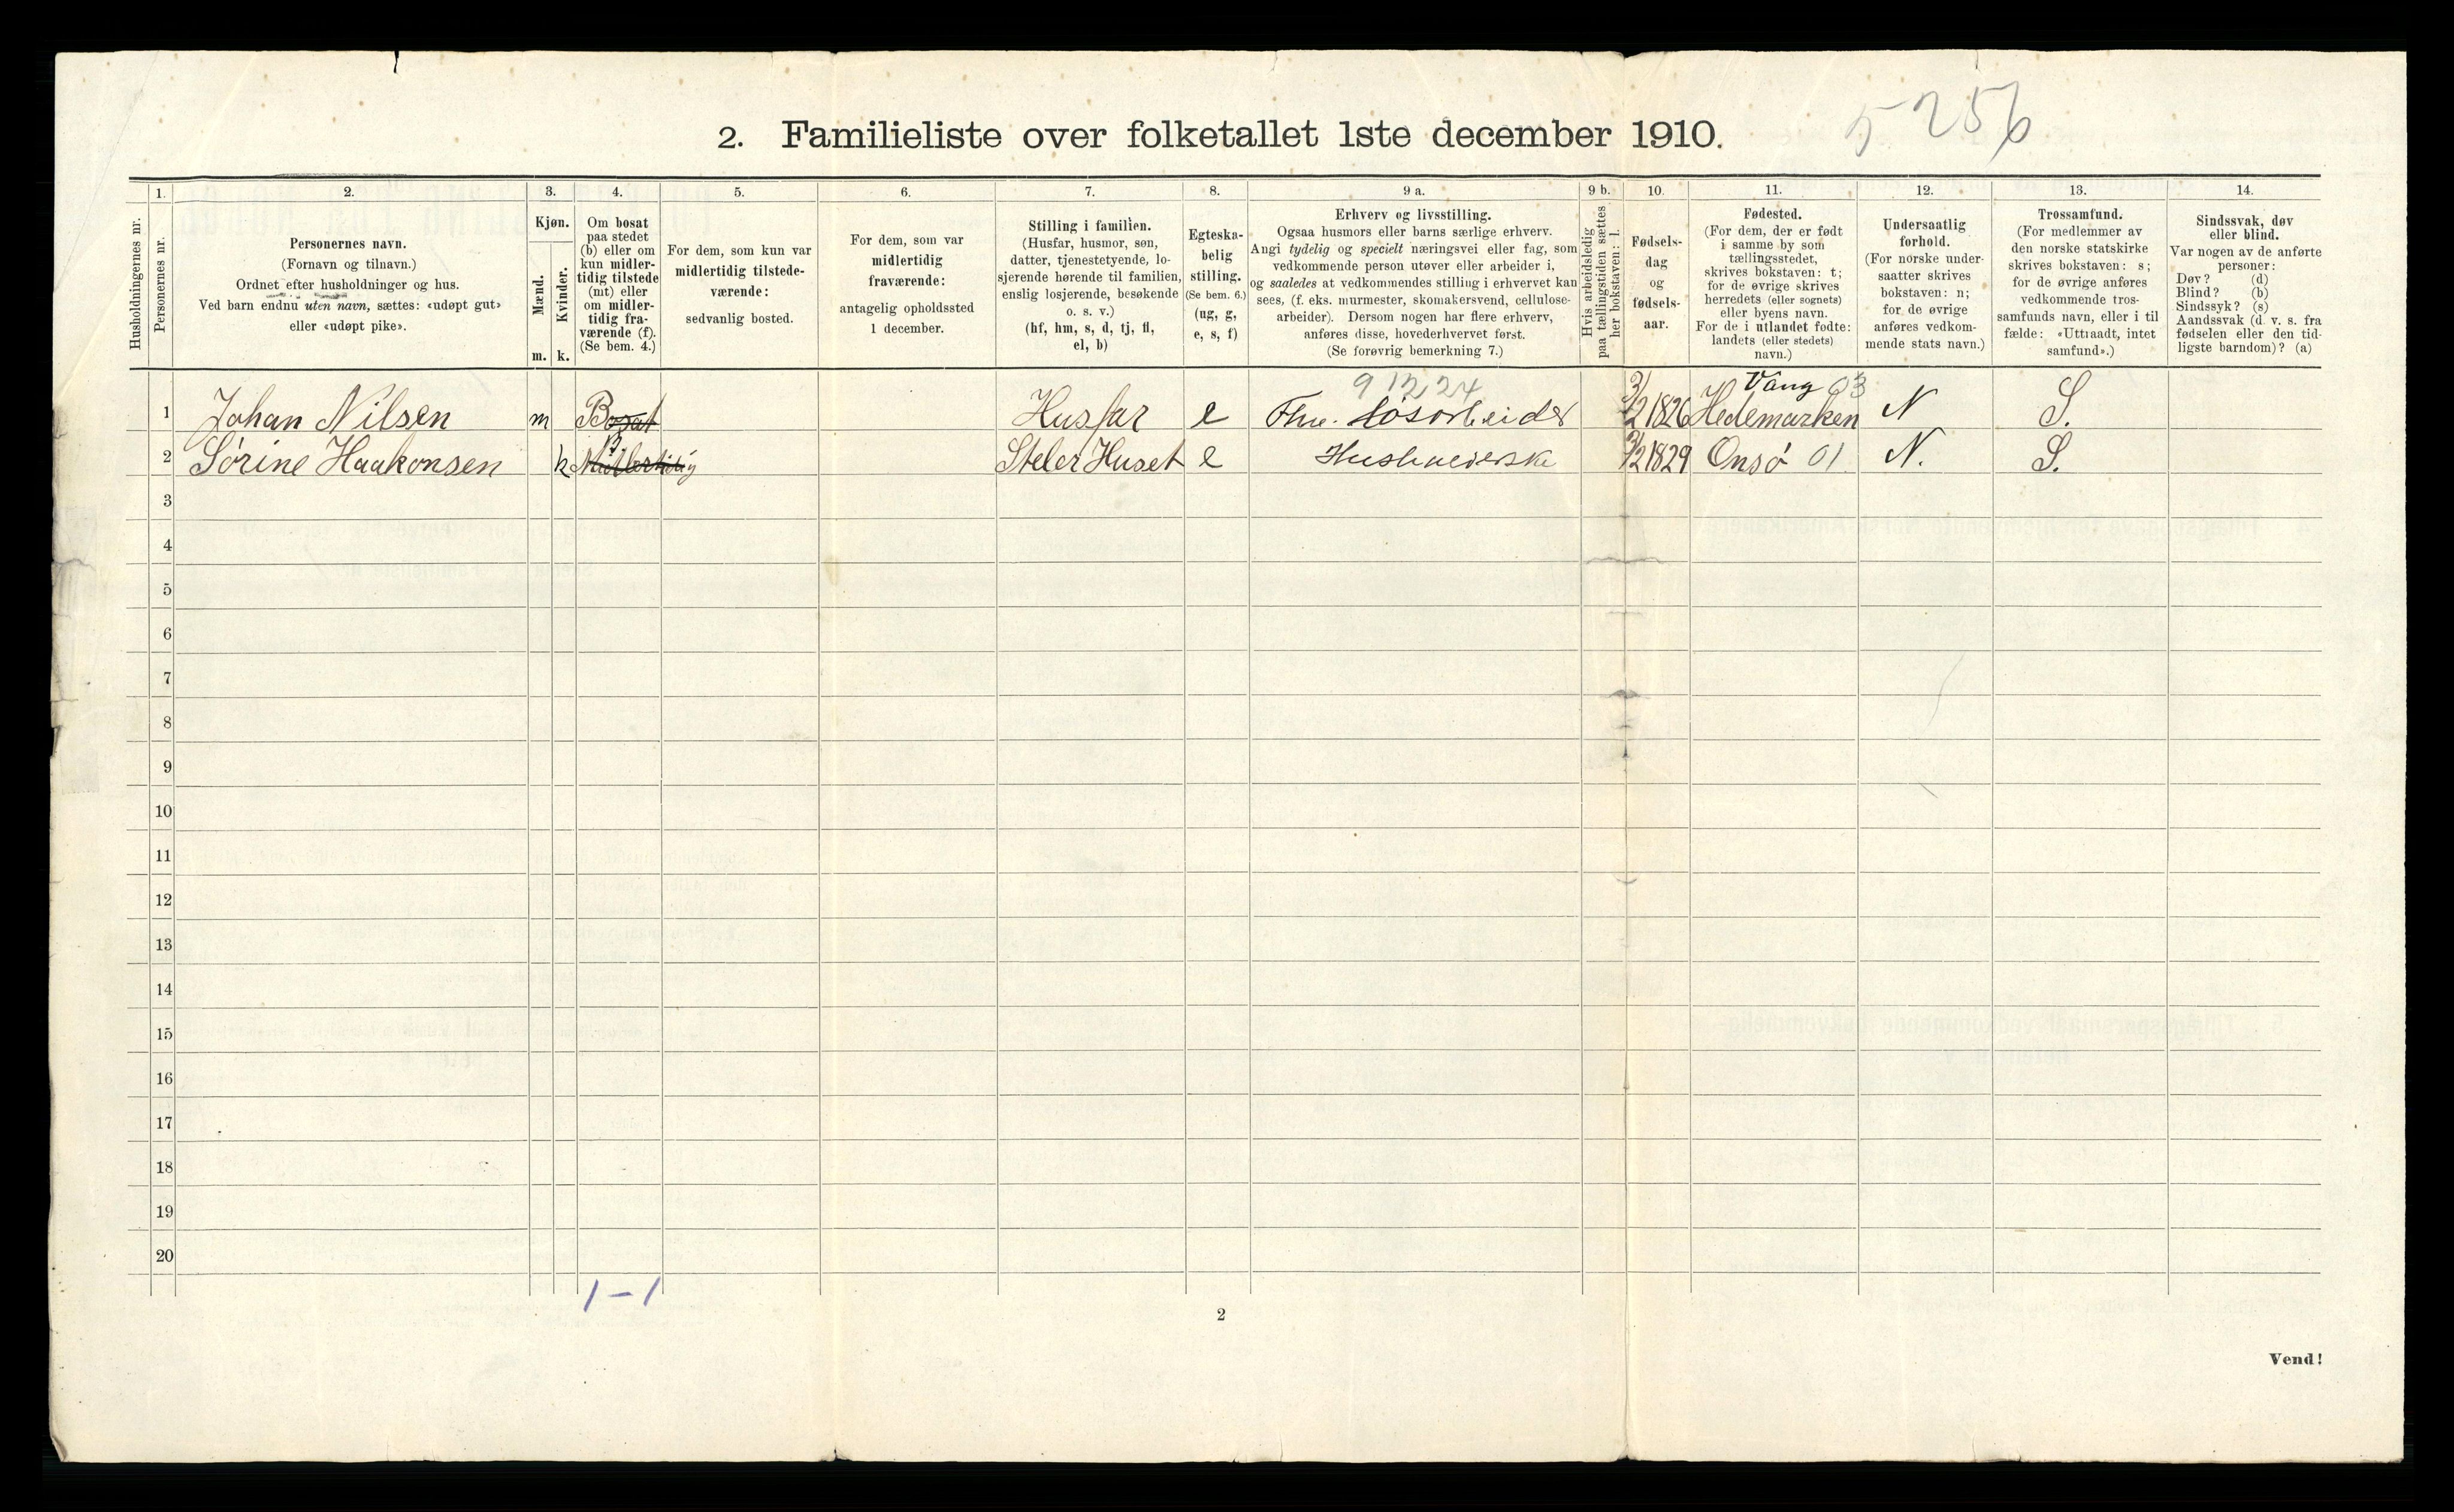 5256
2. Familieliste over folketallet 1ste december 1910.
Husholdningernes nr.
1.
Personernes nr.
2.
Personernes navn.
(Fornavn og tilnavn.)
Ordnet efter husholdninger og hus.
Ved barn endnu uten navn, sættes: «udøpt gut»
eller «udøpt pike».
3.
Kjøn.
Mænd.
Kvinder.
m. k.
4.
Om bosat
paa stedet
(b) eller om
kun midler-
tidig tilstede
(mt) eller
om midler-
tidig fra-
værende (f).
(Se bem. 4.)
5.
For dem, som kun var
midlertidig tilstede-
værende:
sedvanlig bosted.
6.
For dem, som var
midlertidig
fraværende:
antagelig opholdssted
1 december.
7.
Stilling i familien.
(Husfar, husmor, søn,
datter, tjenestetyende, lo-
sjerende hørende til familien,
enslig losjerende, besøkende
o. s. v.)
(hf, hm, s, d, tj, fl,
el, b)
8.
Egteska-
belig
stilling.
(Se bem. 6.)
(ug, g,
e, s, f)
9 a.
Erhverv og livsstilling.
Ogsaa husmors eller barns særlige erhverv.
Angi tydelig og specielt næringsvei eller fag, som
vedkommende person utøver eller arbeider i,
og saaledes at vedkommendes stilling i erhvervet kan
sees, (f. eks. murmester, skomakersvend, cellulose-
arbeider). Dersom nogen har flere erhverv,
anføres disse, hovederhvervet først.
(Se forøvrig bemerkning 7.)
9 b.
Hvis arbeidsledig
paa tællingstiden sættes
her bokstaven: l.
10.
Fødsels-
dag
og
fødsels-
aar.
11.
Fødested.
(For dem, der er født
i samme by som
tællingsstedet,
skrives bokstaven: t;
for de øvrige skrives
herredets (eller sognets)
eller byens navn.
For de i utlandet fødte:
landets (eller stedets)
navn.)
12.
Undersaatlig
forhold.
(For norske under-
saatter skrives
bokstaven: n;
for de øvrige
anføres vedkom-
mende stats navn.)
13.
Trossamfund.
(For medlemmer av
den norske statskirke
skrives bokstaven: s;
for de øvrige anføres
vedkommende tros-
samfunds navn, eller i til
fælde: «Uttraadt, intet
samfund».)
14.
Sindssvak, døv
eller blind.
Var nogen av de anførte
personer:
Døv? (d)
Blind? (b)
Sindssyk? (s)
Aandssvak (d. v. s. fra
fødselen eller den tid-
ligste barndom)? (a)
9 12 24 Vang 03
1 Johan Nilsen m Bosat Husfar e Løsarbeider 3/2 1826 Hedemarken N S.
2 Sörine Haakonsen k B Midlertidig Steler Huset e 3/2 1829 Onsö 01 N. S.
3
4
5
6
7
8
9
10
11
12
13
14
15
16
17
18
19
20
1 - 1
2
Vend!